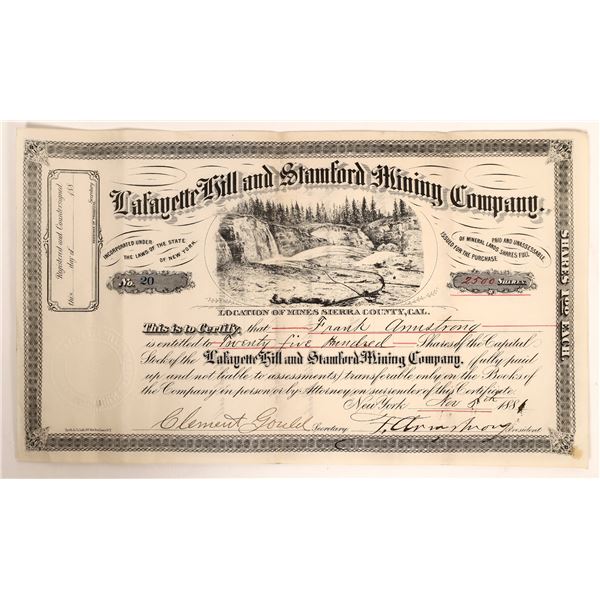 Lafayette Hill and Stamford Mining Company.
INCORPORATED UNDER
THE LAWS OF THE STATE
OF NEW YORK.
ISSUED FOR THE PURCHASE
OF MINERAL LANDS-SHARES FULL
PAID AND UNASSESSABLE
No. 20
2500 SHARES
LOCATION OF MINES SIERRA COUNTY, CAL.
This is to Certify, that Frank Armstrong
is entitled to Twenty five Hundred Shares of the Capital
Stock of the Lafayette Hill and Stamford Mining Company, fully paid
up and not liable to assessments, transferable only on the Books of
the Company in person or by Attorney on surrender of this Certificate.
New York Nov 188
Clement Gould Secretary F. Armstrong President
Registered and Countersigned
this day of 188
Secretary
SHARES EACH